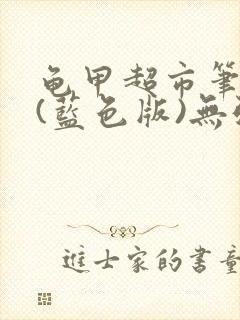 龜甲超市筆
(藍色版)無
進士家的書童